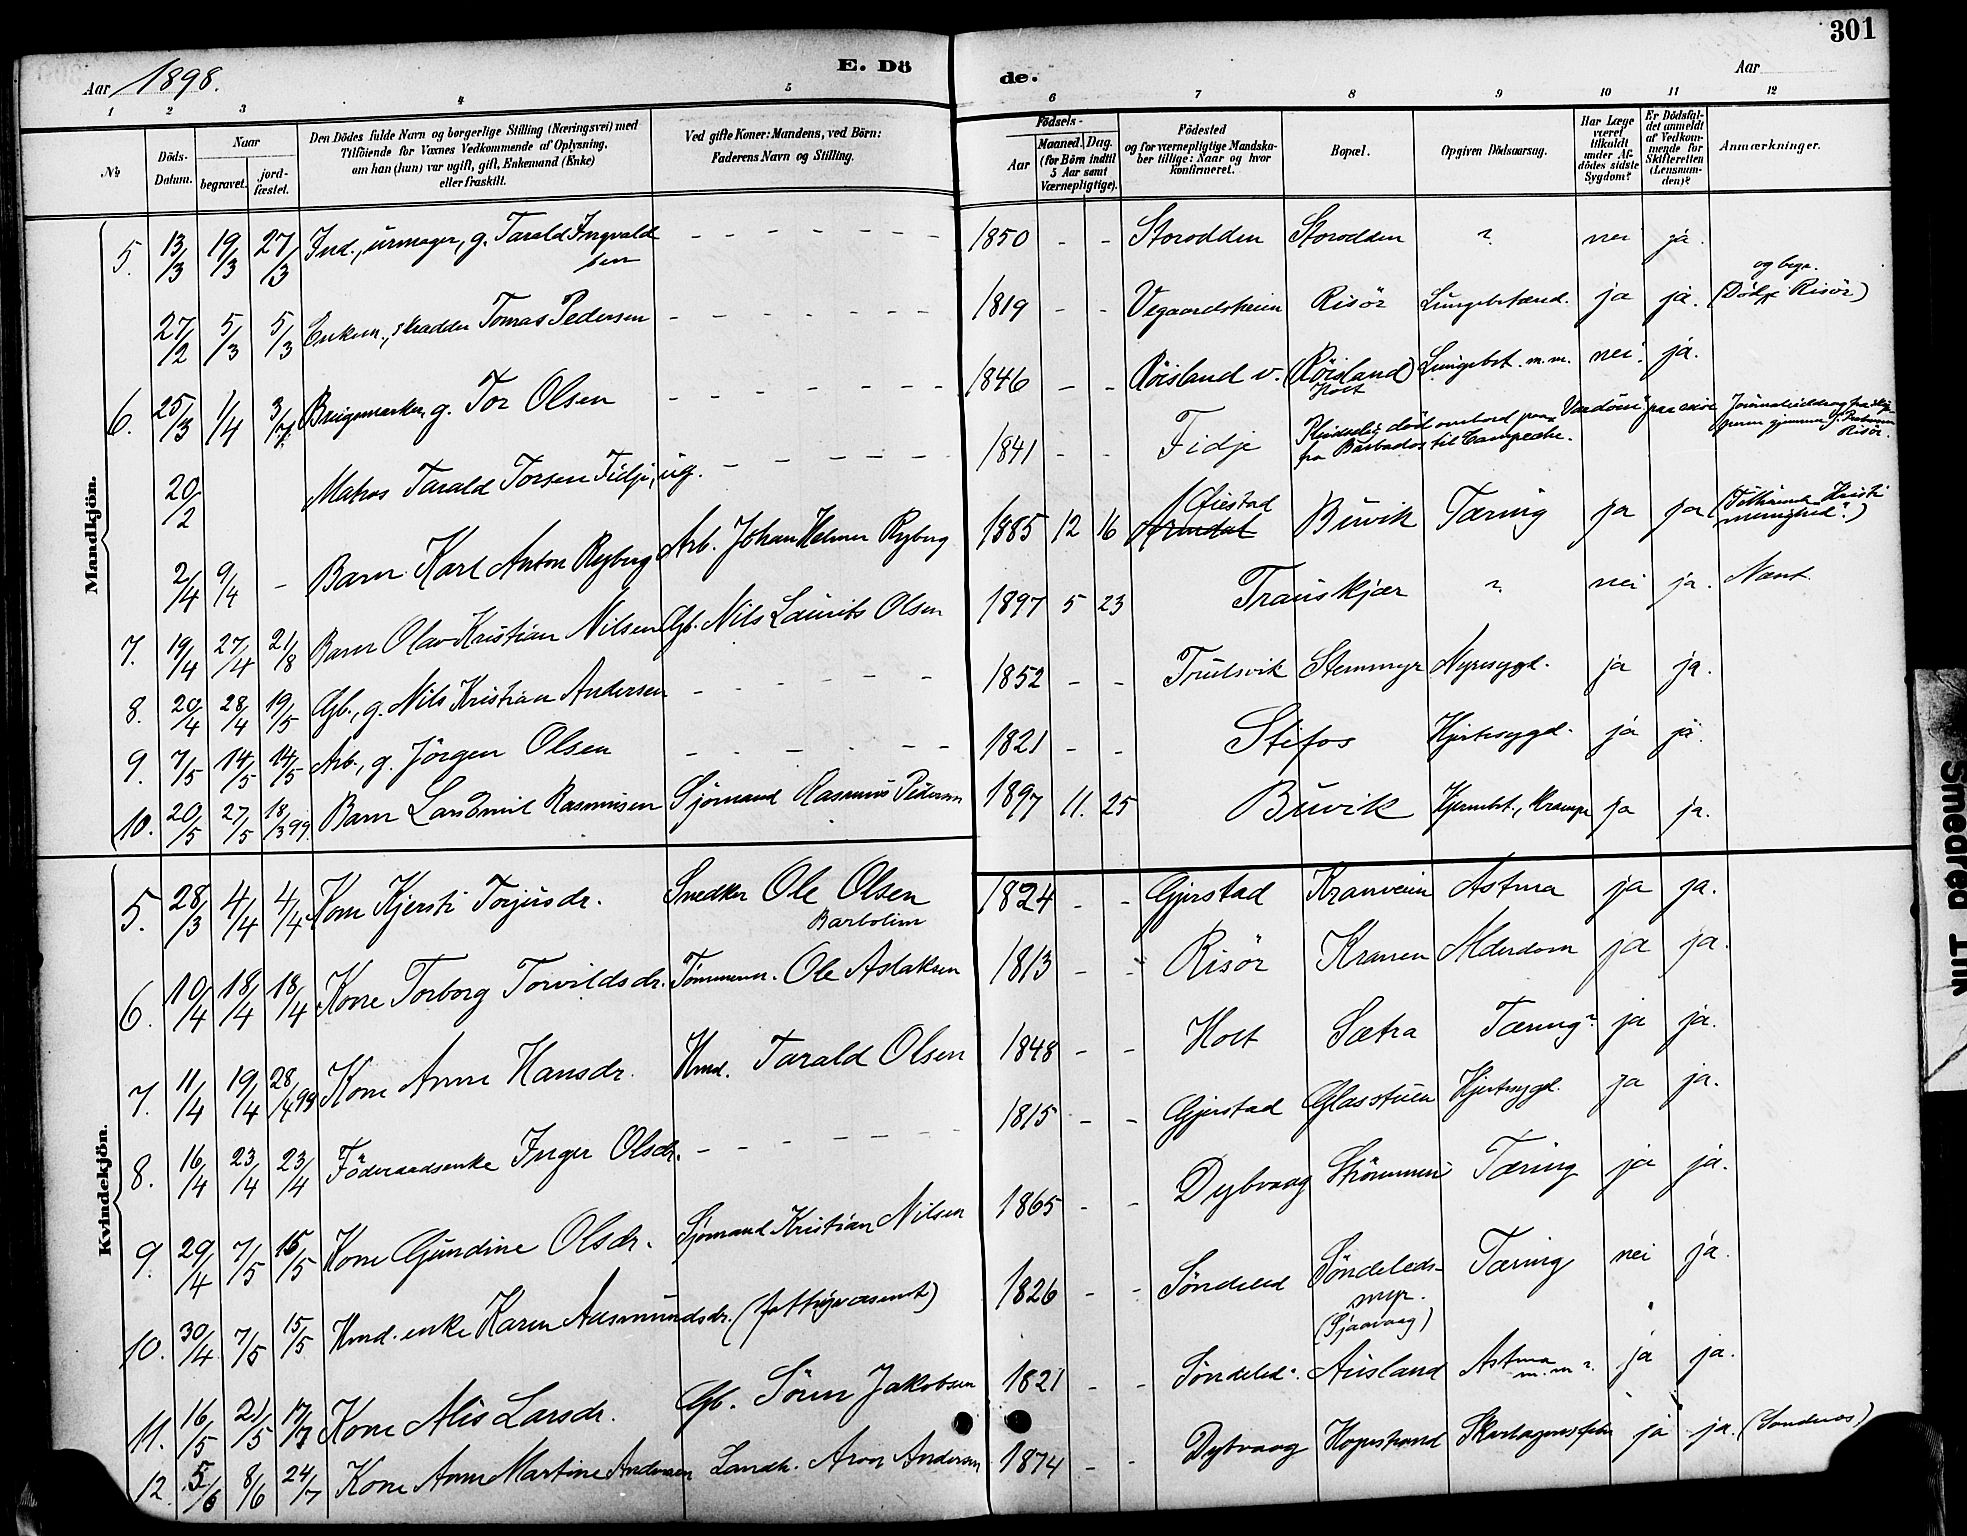 301
Aar 1898. E. Dö de. Aar
1 2 3 4 5 6 7 8 9 10 11 12
No
Döds-Datum.
Naar
begravet.
jord-fæstet.
Den Dödes fulde Navn og borgerlige Stilling (Næringsvei) med
Tilföiende for Voxnes Vedkommende af Oplysning,
om han (hun) var ugift, gift, Enkemand (Enke)
eller fraskilt.
Ved gifte Koner: Mandens, ved Börn:
Faderens Navn og Stilling.
Födsels-
Aar
Maaned. Dag.
(for Börn indtil
5 Aar samt
Værnepligtige).
Födested
og for værnepligtige Mandska-
ber tillige: Naar og hvor
konfirmeret.
Bopæl.
Opgiven Dödsaarsag.
Har Læge
været
tilkaldt
under Af-
dödes sidste
Sygdom?
Er Dödsfal-
det anmeldt
af Vedkom-
mende for
Skifteretten
(Lensman-
den)?
Anmærkninger.
Mandkjön.
5. 13/3 19/3 27/3 Ind., urmager, g. Tarald Ingvald
sen - - - - - - - 1850 - - Storodden Storodden ? nei ja.
27/2 5/3 5/3 Enkem., skrædder Tomas Pedersen - - - - - - - 1819 - - Vegaardsheien Risör Lungebetænd. ja ja. (Död og begr. Risör)
6. 25/3 1/4 3/4 g. Tor Olsen - - - - - - - 1846 - - Röisland v. (Röisland) Holt Lungebet. m.m. nei. ja.
20/2 Matros Tarald Torsen Fidje, ug. - - - - - - 1841 - - Fidje död ombord paa Vardöen paa reise
fra Barbados til Campeche.
Risör.
2/4 9/4 - Barn Karl Anton Ryberg Arb. Johan Helmer Ryberg 1885 12 16 Öiestad Buvik Tæring ja ja
7. 19/4 27/4 21/8 Barn Olav Kristian Nilsen Gb. Nils Laurits Olsen 1897 5 23 Trauskjær ? nei ja.
8. 20/4 28/4 19/5 Gb., g. Nils Kristian Andersen - - - - - - 1852 - - Trulsvik Stemmyr Nyresygd. ja ja.
9. 7/5 14/5 14/5 Arb., g. Jörgen Olsen - - - - - - 1821 - - Stifos Hjertesygd. ja ja.
10. 20/5 27/5 18/3 99. Barn Lars Emil Rasmussen Sjömand Rasmus Pedersen 1897 11. 25 Buvik Hjernebet., Krampe ja ja.
Kvindekjön.
5. 28/3 4/4 4/4 Kone Kjersti Torjusdr. Snedker Ole Olsen
Barbolim 1824 - - Gjerstad Kranveien Astma ja ja.
6. 10/4 18/4 18/4 Kone Torborg Torvildsdr. Tömmerm. Ole Aslaksen 1813 - - Risör Kranen Alderdom ja ja.
7. 11/4 19/4 28/4 99 Kone Anne Hansdr. Hmd. Tarald Olsen 1848 - - Holt Sætra Tæring? ja ja.
8. 16/4 23/4 23/4 Föderaadsenke Inger Olsdr. - - - - - - 1815 - - Gjerstad Glasstuen Hjertesygd. ja ja.
9. 29/4 7/5 15/5 Kone Gundine Olsdr. Sjömand Kristian Nilsen 1865 - - Dybvaag Strömmen Tæring ja ja.
10. 30/4 7/5 15/5 Hmd. enke Karen Aasmundsdr. (fattigvæsenet) 1826 - - Söndeled Söndeleds-
myr.
(Sjaavaag) Tæring nei ja.
11. 16/5 21/5 17/7 Kone Alis Larsdr. Gb. Sören Jakobsen 1821 - - Söndeled. Ausland Astma
m.m.? ja ja.
12. 5/6 8/6 24/7 Kone Anne Martine Andersen Landh. Aron Andersen 1874 - - Dybvaag Hopestrand Skarlagensfeber ja ja. (Sandnes)
Smeared Ink